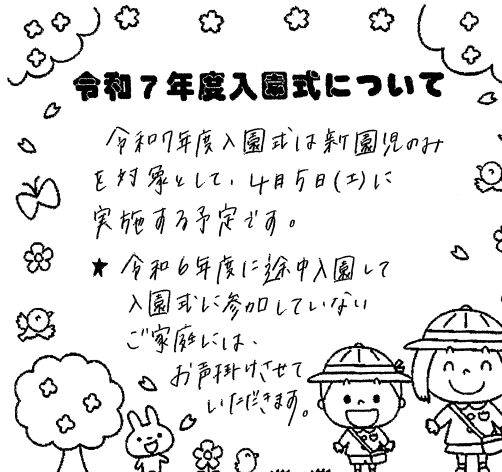 令和7年度入園式について
令和7年度入園式は新園児のみ
を対象として、4月5日(土)に
実施する予定です。
★ 令和6年度に途中入園して
入園式に参加していない
ご家庭には、
お声掛けさせて
いただきます。